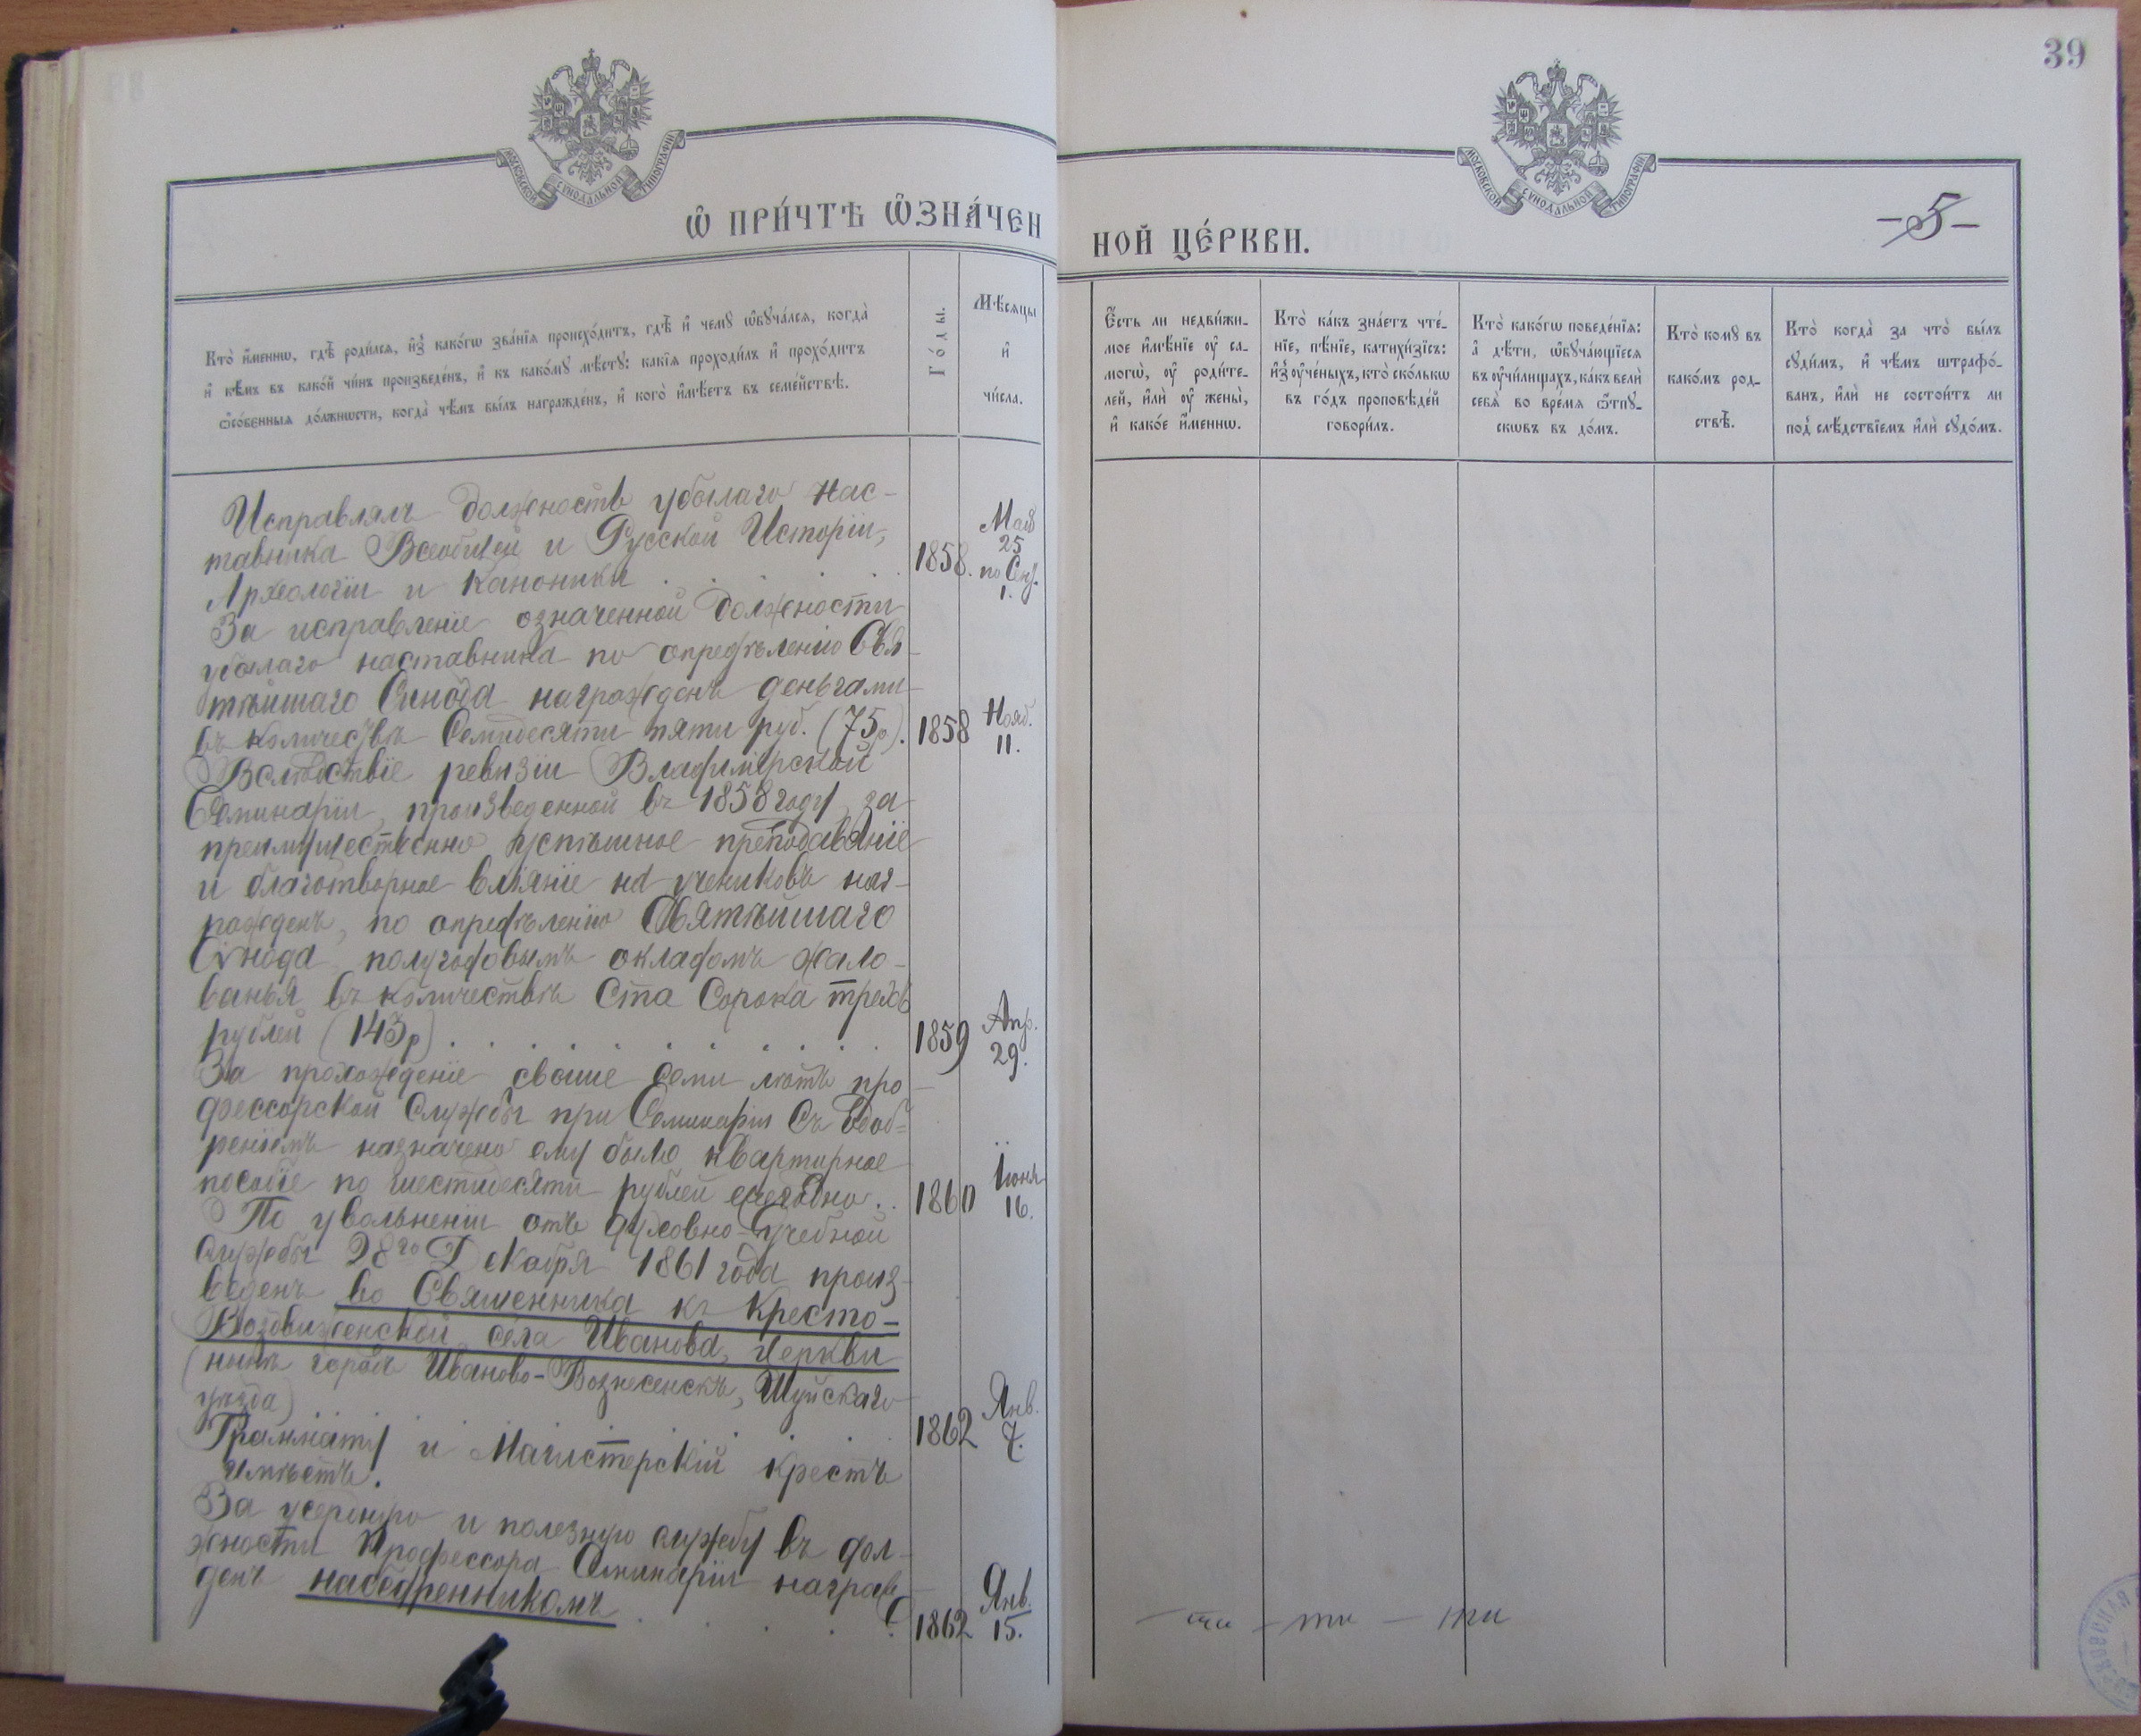 39
МОСКОВСКОЙ СѴНОДАЛЬНОЙ ТИПОГРАФІИ
МОСКОВСКОЙ СѴНОДАЛЬНОЙ ТИПОГРАФІИ
Ѡ҆ ПРИ́ЧТѢ Ѡ҆ЗНА́ЧЕН
НОЙ ЦЕ́РКВИ.
-5-
Кто̀ и҆́меннѡ, гдѣ̀ роди́лся, и҆з̾ како́гѡ зва́нїѧ происхо́дитъ, гдѣ̀ и҆ чемꙋ̀ ѡ҆бꙋча́лся, когда̀
и҆ кѣ́мъ въ како́й чи́нъ произведе́нъ, и҆ къ како́мꙋ мѣ́стꙋ: какі̑ѧ проходи́лъ и҆ прохо́дитъ
ѻ҆со́бенныѧ до́лжнѡсти, когда̀ чѣ́мъ бы́лъ награжде́нъ, и҆ кого̀ и҆мѣ́етъ въ семе́йствѣ.
Го́ды.
Мѣ́сяцы
и҆
чи́сла.
Е҆́сть ли недви́жи-
мое и҆мѣ́нїе ᲂу҆ са-
могѡ̀, ᲂу҆ роди́те-
лей, и҆лѝ ᲂу҆ жены̀,
и҆ како́е и҆́меннѡ.
Кто̀ ка́къ зна́етъ чте́-
нїе, пѣ́нїе, катихи́зїсъ:
и҆з̾ ᲂу҆че́ныхъ, кто̀ ско́лькѡ
въ го́дъ проповѣ́дей
говори́лъ.
Кто̀ како́гѡ поведе́нїѧ:
а҆ дѣ́ти, ѡ҆бꙋча́ющїеся
въ ᲂу҆чи́лищахъ, ка́къ велѝ
себѧ̀ во вре́мѧ ѿпꙋ-
скѡвъ въ до́мъ.
Кто̀ комꙋ̀ въ
како́мъ род-
ствѣ̀.
Кто̀ когда̀ за что̀ бы́лъ
сꙋди́мъ, и҆ чѣ́мъ штрафо́-
ванъ, и҆лѝ не состои́тъ ли
под̾ слѣ́дствїемъ и҆лѝ сꙋдо́мъ.
Исправлялъ должность убылаго Нас-
тавника Всеобщей и Русской Исторіи,
Археологіи и Каноники . . . . . 1858. Мая 25 по Сент. 1.
За исправленіе означенной должности
убылаго наставника по опредѣленію Свя
тѣйшаго Синода награжденъ деньгами
въ количествѣ Семидесяти пяти руб. (75р). 1858 Нояб. 11.
Вслѣдствіе ревизіи Владимірской
Семинаріи, произведенной въ 1858 году за
преимущественно успѣшное преподаваніе
и благотворное вліяніе на учениковъ наг-
ражденъ, по опредѣленію Святѣйшаго
Сѵнода, полугодовымъ окладомъ жало-
ванья въ количествѣ Ста Сорока трехъ
рублей (143р) . . . . . . . . 1859 Апр. 29.
За прохожденіе свыше семи лѣтъ про
фессорской Службы при Семинаріи Съ Одоб-
реніемъ назначено ему было квартирное
пособіе по шестидесяти рублей ежегодно. . 1860 Іюня 16.
По увольненіи отъ духовно-учебной
службы 28го Декабря 1861 года произ-
веденъ во Священника къ Кресто-
Воздвиженской села Иванова, Церкви
(нынѣ городъ Иваново-Вознесенскъ, Шуйскаго
уѣзда) . . . . 1862 Янв. 7.
Граммату и Магистерскій крестъ
имѣетъ.
За усердную и полезную службу въ дол-
жности Профессора Семинаріи награж-
денъ набедренникомъ . . . . 1862 Янв. 15.